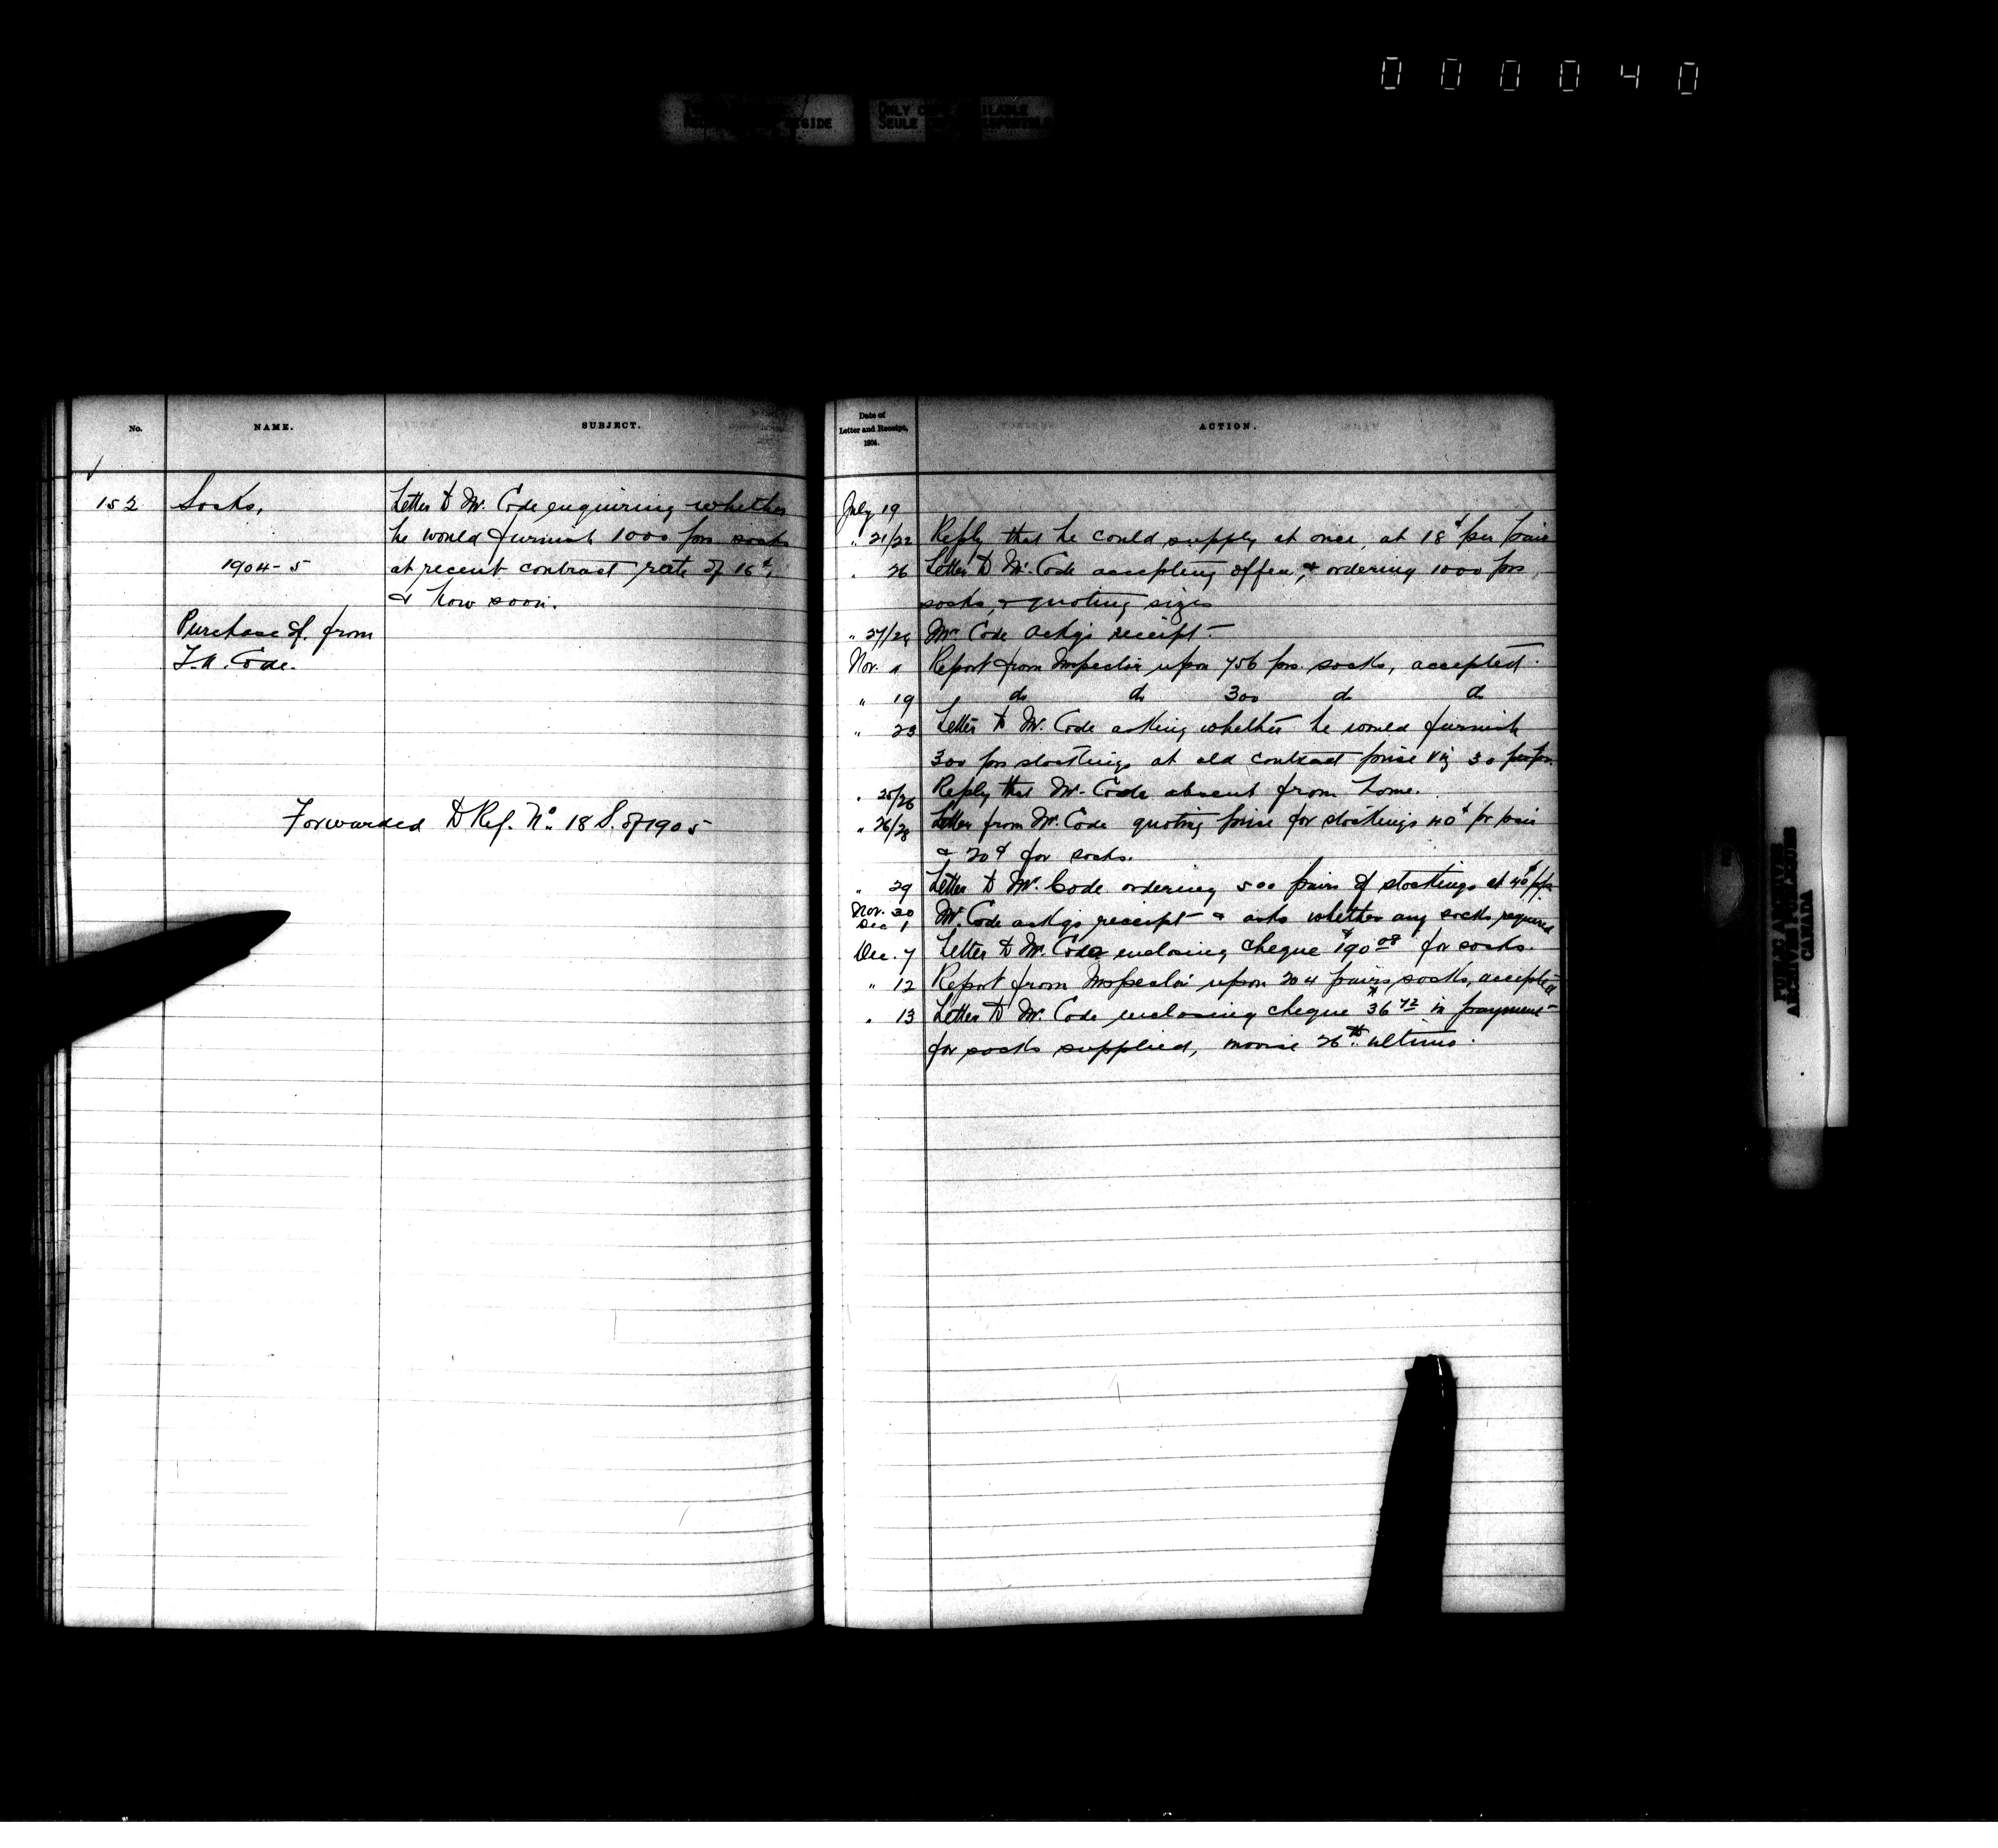 000040
ONLY
SEULE
No.
NAME.
SUBJECT.
152
Socks,
1904-5
Purchase of, from
T.A. Code.
Letter to Mr. Code enquiring whether
he would furnish 1000 prs. socks
at recent contract rate of 16¢,
& how soon.
Forwarded to Ref. No. 18 S. of 1905
Date of
Letter and Receipt,
1904.
ACTION.
July 19
" 21/22 Reply that he could supply at once, at 18¢ per pair
" 26 Letter to Mr. Code accepting offer, & ordering 1000 prs
socks, & quoting sizes
" 27/28 Mr. Code ackgs receipt.
Nov. 1 Report from Inspector upon 756 prs. socks, accepted.
" 19 do do 300 do do
" 23 Letter to Mr. Code asking whether he would furnish
300 prs stockings at old contract price viz 30 per pr.
" 25/26 Reply that Mr. Code absent from home.
" 26/28 Letter from Mr. Code quoting price for stockings 40¢ pr pair
& 20¢ for socks.
" 29 Letter to Mr. Code ordering 500 pairs of stockings at 40¢ p/pr
Nov. 30
Dec 1 Mr. Code ackgs receipt & asks whether any socks required
Dec. 7 Letter to Mr. Code enclosing cheque $190.08 for socks.
" 12 Report from Inspector upon 204 pairs socks, accepted
" 13 Letter to Mr. Code enclosing cheque $36.72 in payment
for socks supplied, invoice 26th ultimo.
PUBLIC ARCHIVES
ARCHIVES PUBLIQUES
CANADA